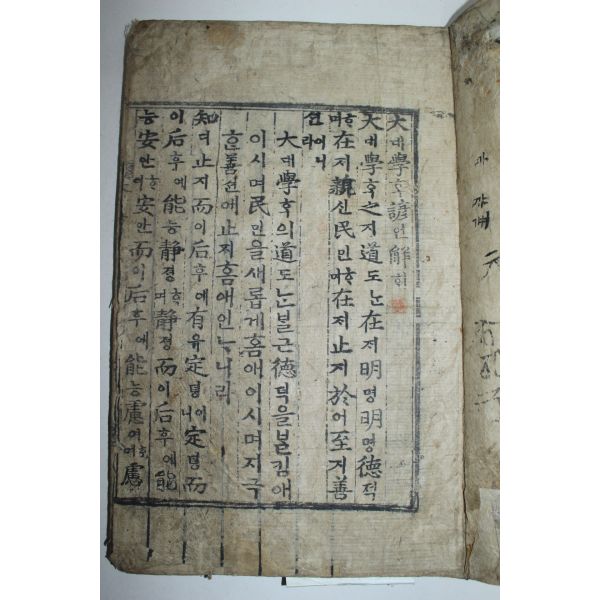 大대學ᄒᆞᆨ諺언解ᄒᆡ
大대學ᄒᆞᆨ之지道도ᄂᆞᆫ在ᄌᆡ明명明명德덕
ᄒᆞ며在ᄌᆡ親신民민ᄒᆞ며在ᄌᆡ止지於어至지善
션이니라
大대學ᄒᆞᆨ의道도ᄂᆞᆫᄇᆞᆯ근德덕을ᄇᆞᆯ킴애
이시며民민을새롭게홈애이시며지극
ᄒᆞᆫ善션애止지홈애인ᄂᆞ니라
知디止지而이后후에有유定뎡이니定뎡而
이后후에能능静졍ᄒᆞ며静졍而이后후에能
능安안ᄒᆞ며安안而이后후에能능慮려ᄒᆞ며慮